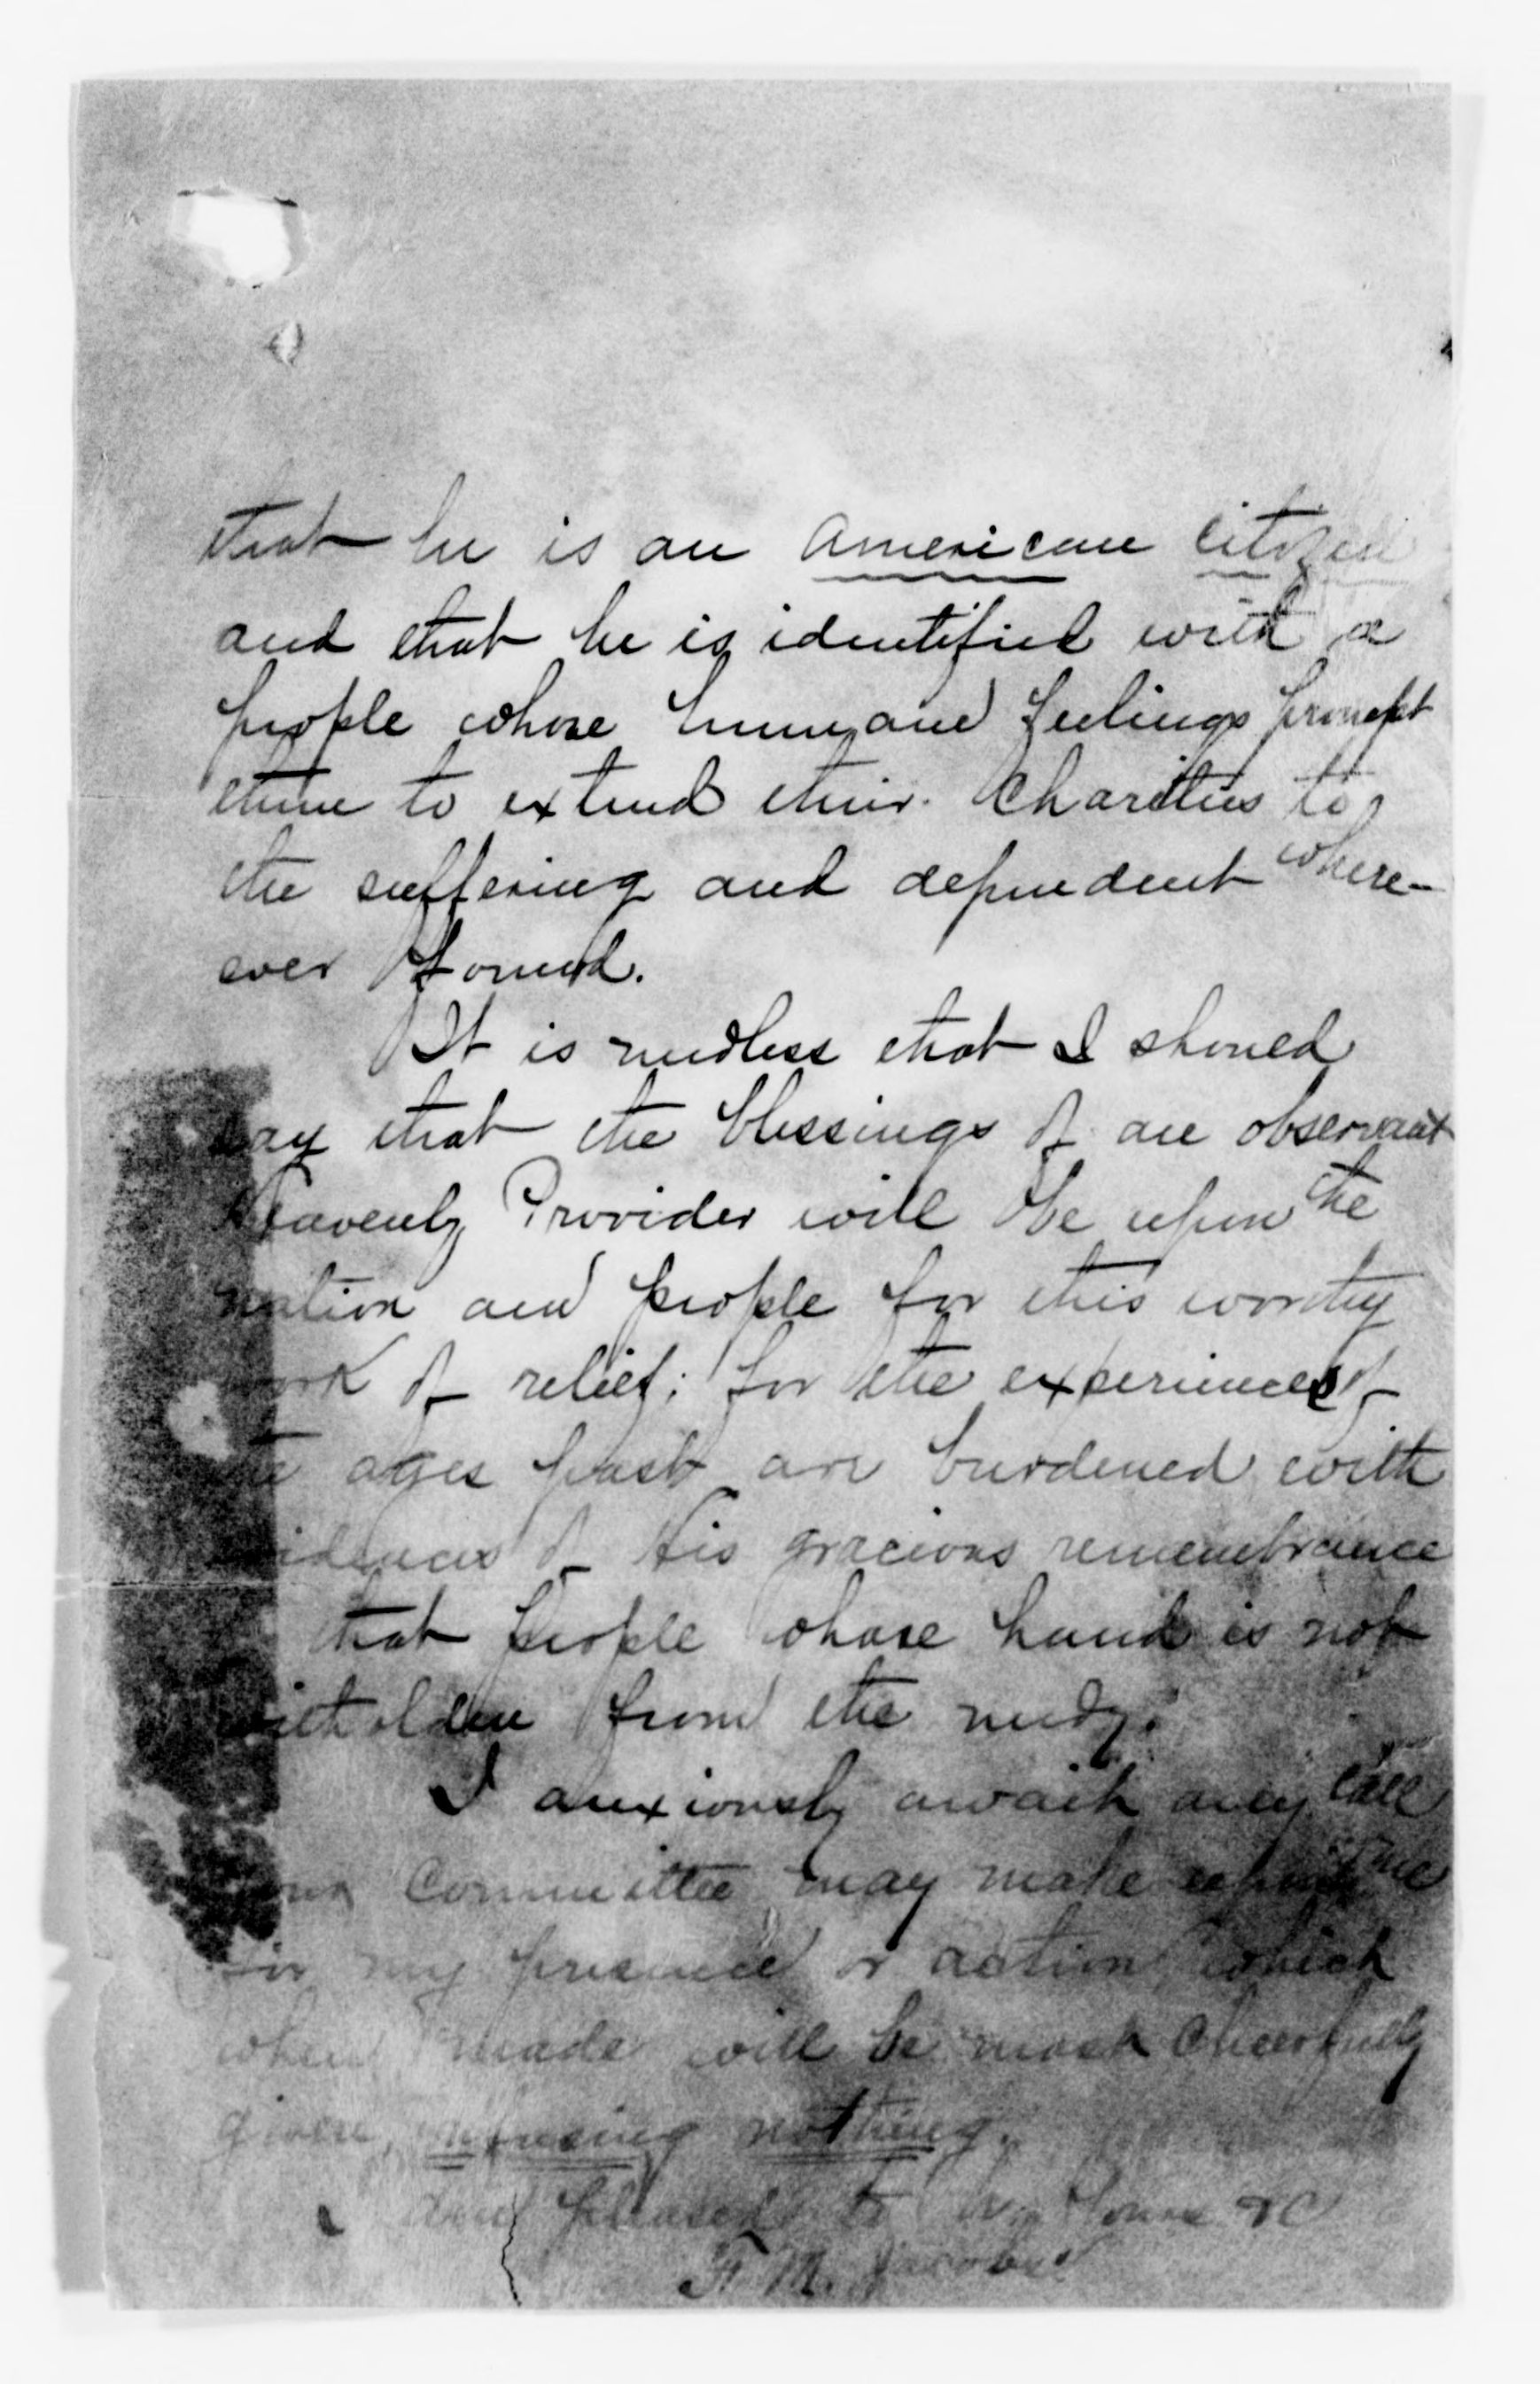 that he is an American Citizen
and that he is identified with a
people whose humane feelings prompt
them to extend their Charities to
the suffering and dependent where-
ever found.
It is needless that I should
say that the blessings of an observant
Heavenly Provider will be upon the
nation and people for this worthy
work of relief; for the experiences of
the ages past are burdened with
evidences of His gracious remembrance
that people whose hand is not
witholden from the needy.
I anxiously await any Call
your Committee may make upon me
for my presence or action, which
when made will be most cheerfully
given, refusing nothing.
Am pleased to be, Yours &c
F. M. Jacobs